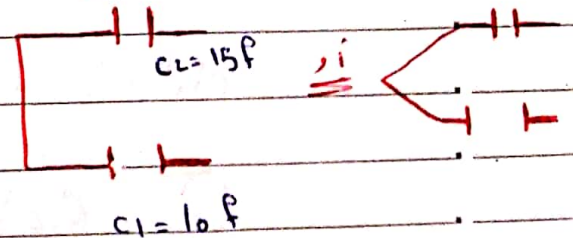 C2 = 15f
أو
C1 = 10f